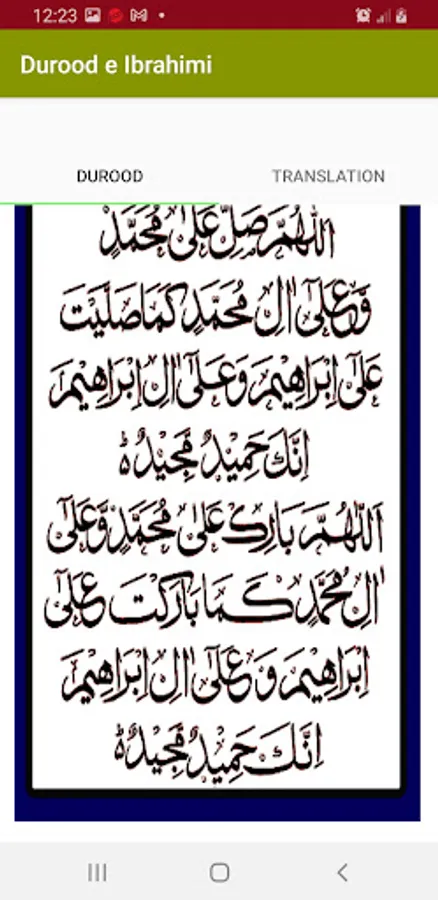 12:23
Durood e Ibrahimi
DUROOD
TRANSLATION
اَللّٰهُمَّ صَلِّ عَلٰى مُحَمَّدٍ
وَّعَلٰٓى اٰلِ مُحَمَّدٍ كَمَا صَلَّيْتَ
عَلٰٓى اِبْرَاهِيْمَ وَعَلٰٓى اٰلِ اِبْرَاهِيْمَ
اِنَّكَ حَمِيْدٌ مَّجِيْدٌ ؕ
اَللّٰهُمَّ بَارِكْ عَلٰى مُحَمَّدٍ وَّعَلٰٓى
اٰلِ مُحَمَّدٍ كَمَا بَارَكْتَ عَلٰٓى
اِبْرَاهِيْمَ وَعَلٰٓى اٰلِ اِبْرَاهِيْمَ
اِنَّكَ حَمِيْدٌ مَّجِيْدٌ ؕ